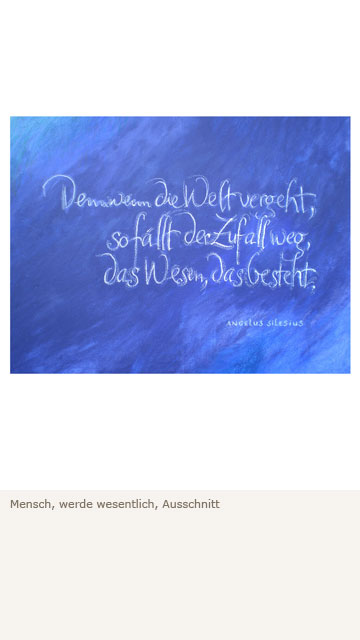 Denn wenn die Welt vergeht,
so fällt der Zufall weg,
das Wesen, das besteht.
ANGELUS SILESIUS
Mensch, werde wesentlich, Ausschnitt